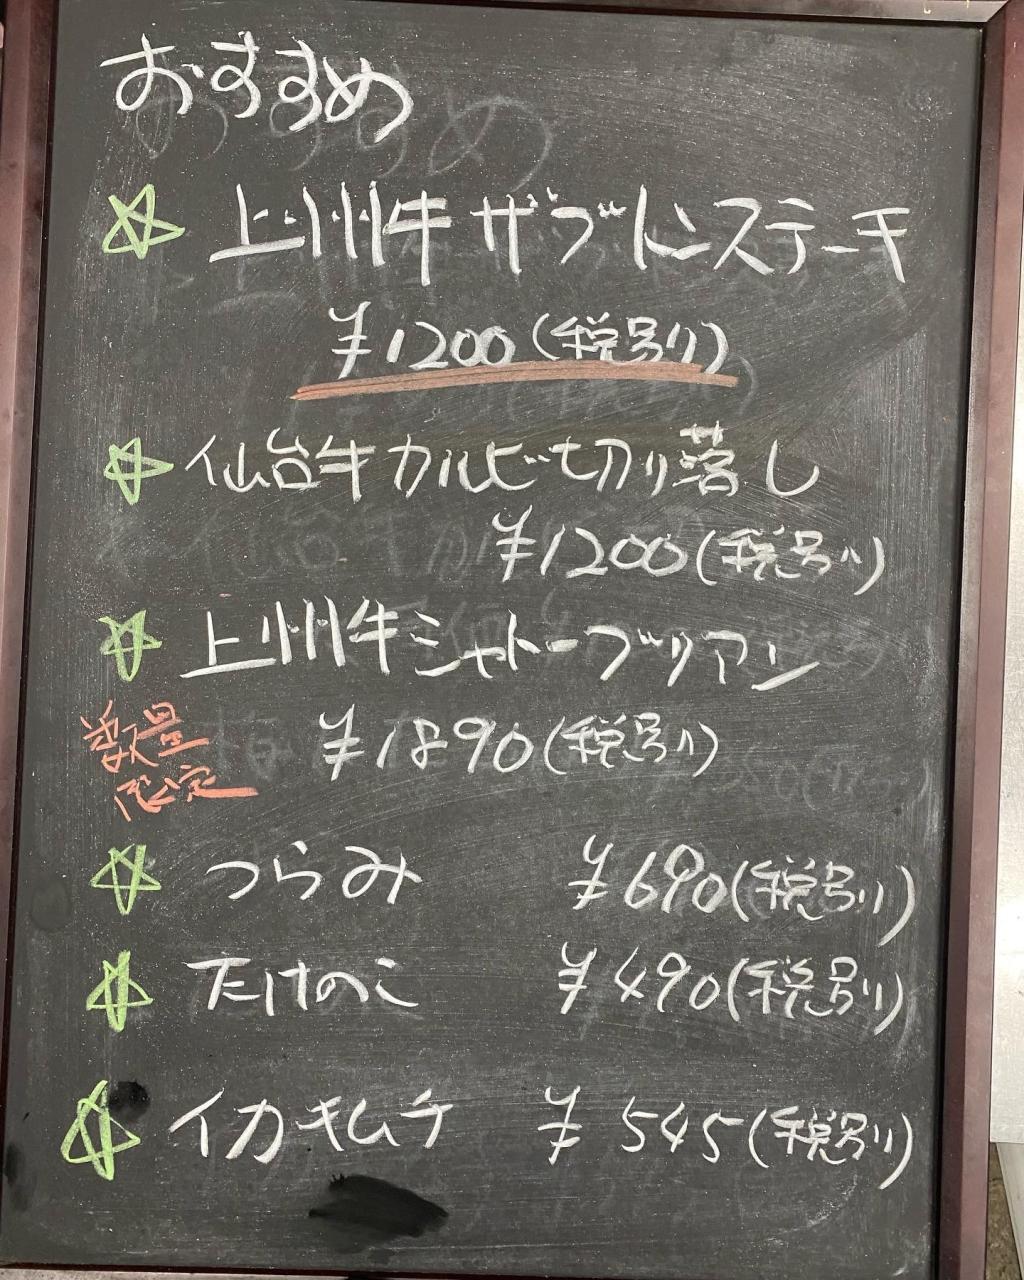 おすすめ
☆ 上州牛ザブトンステーキ
¥1200(税別)
☆ 仙台牛カルビ切り落し
¥1200(税別)
☆ 上州牛シャトーブリアン
数量
限定
¥1890(税別)
☆ つらみ ¥690(税別)
☆ たけのこ ¥490(税別)
☆ イカキムチ ¥545(税別)